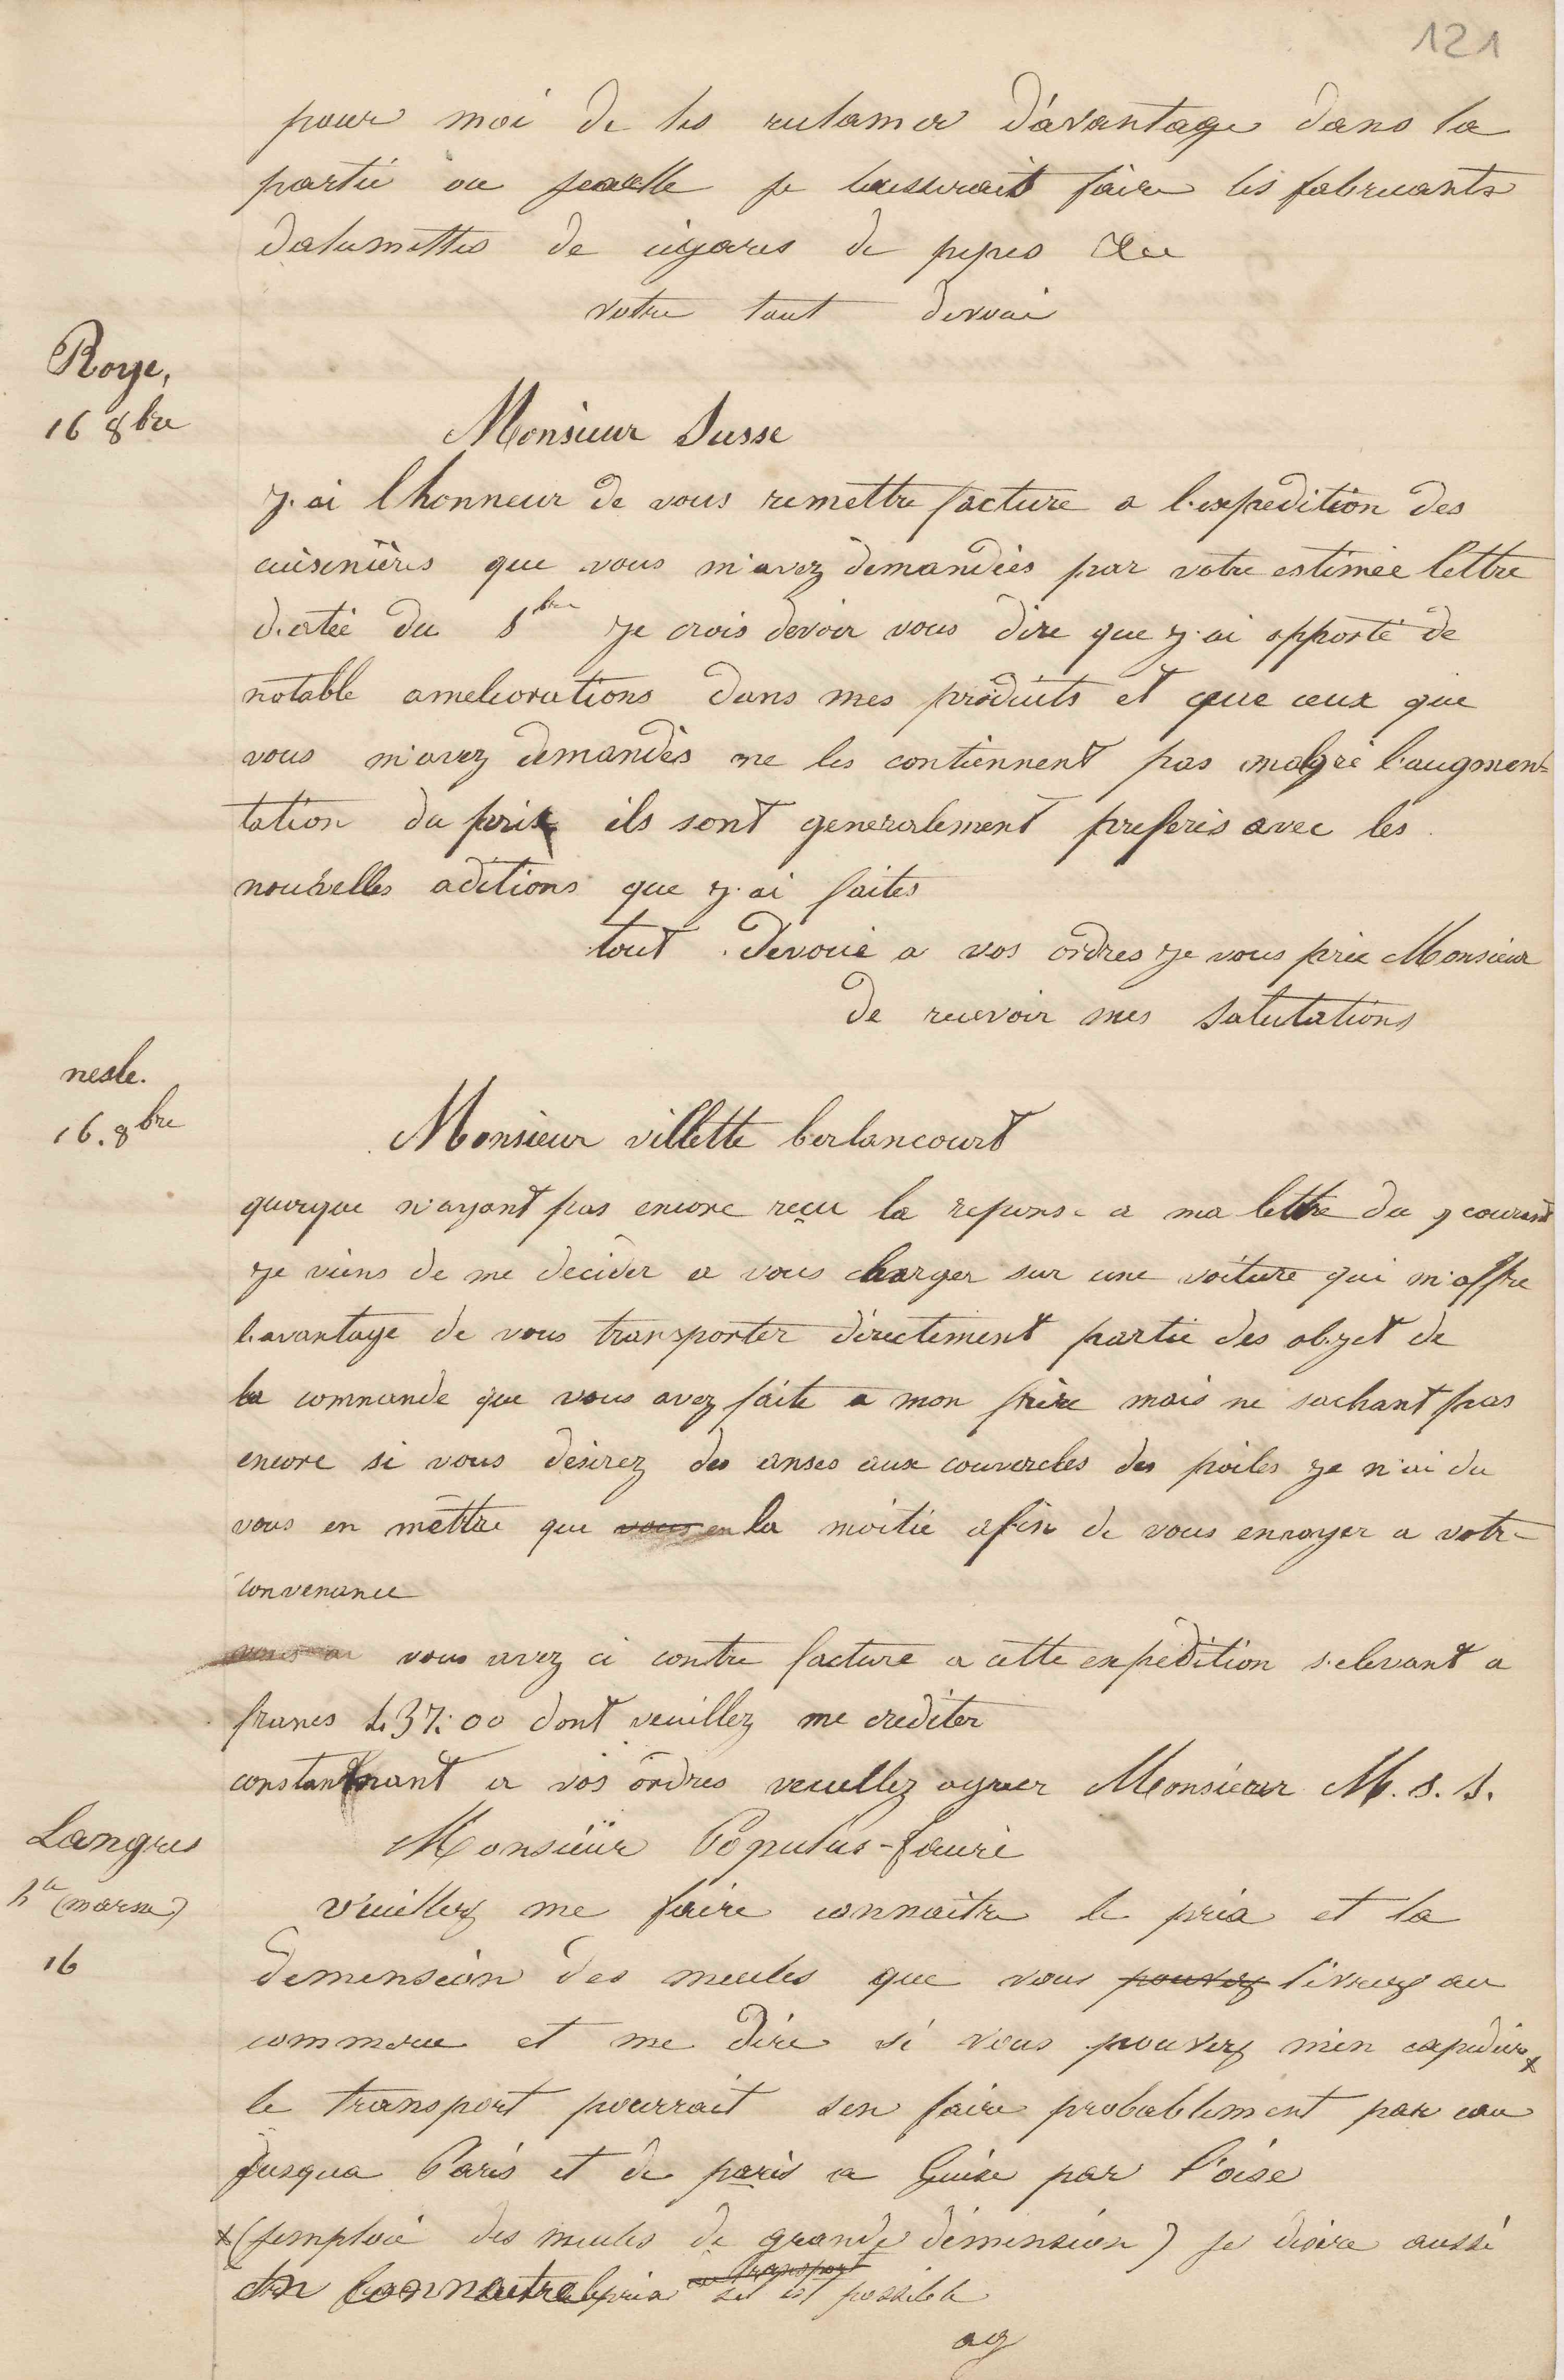 121
pour moi de les reclamer d'avantage dans la
partie ou je laisserait faire les fabricants
dalumettes de cigares de pipes &ce
votre tout devoué
Roye,
16 8bre
Monsieur Susse
J'ai lhonneur de vous remettre facture a l'expedition des
cuisinières que vous m'avez demandées par votre estimée lettre
datée du 8bre Je crois devoir vous dire que J'ai apporté de
notable ameliorations dans mes produits et que ceux que
vous m'avez demandès ne les contiennent pas malgré l'augmen=
tation du prix ils sont generalement preferés avec les
nouvelles aditions que J'ai faites
tout devoué a vos ordres Je vous prie Monsieur
de recevoir mes Salutations
nesle.
16. 8bre
Monsieur villette berlancourt
quoique n'ayant pas encore reçu la reponse a ma lettre du 9 courant
Je viens de me decider a vous charger sur une voiture qui m'offre
l'avantage de vous transporter directement partie des objet de
la commande que vous avez faite a mon frère mais ne sachant pas
encore si vous desirez des anses aux couvercles des poiles Je n'ai du
vous en mettre que vous en la moitié afin de vous envoyer a votre
convenance
vous avez ci contre facture a cette expedition s'elevant a
francs 437:00 dont veuillez me crediter
constantmant a vos ordres veuillez agreer Monsieur M. S. S.
Langres
hte (marne)
16
Monsieur Populus-faure
Veuillez me faire connaitre le prix et la
demension des meules que vous pouvez livrez au
commerce et me dire si vous pouvez m'en expedier x
le transport pourrait sen faire probablement par eau
jusqua Paris et de paris a Guise par l'oise
x (jemploie des meules de grande dimension) je desire aussi
en connaitre le prix au transport sil est possible
ag